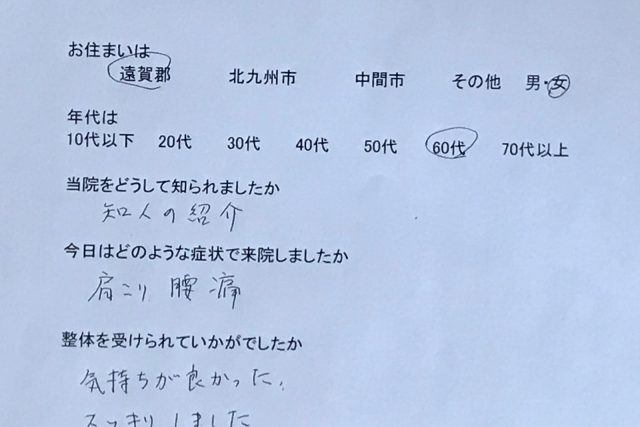 お住まいは
遠賀郡 北九州市 中間市 その他 男・女
年代は
10代以下 20代 30代 40代 50代 60代 70代以上
当院をどうして知られましたか
知人の紹介
今日はどのような症状で来院しましたか
肩こり 腰痛
整体を受けられていかがでしたか
気持ちが良かった。
スッキリしました